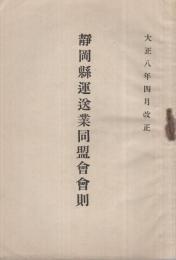 大正八年四月改正
靜岡縣運送業同盟會會則